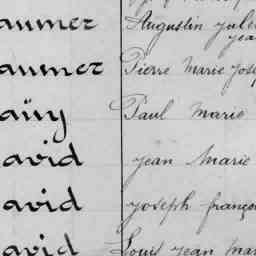 aumer Augustin Jules
Jean
aumer Pierre Marie Jose
aüy Paul Marie
avid Jean Marie
avid Joseph françoi
avid Louis Jean Mar